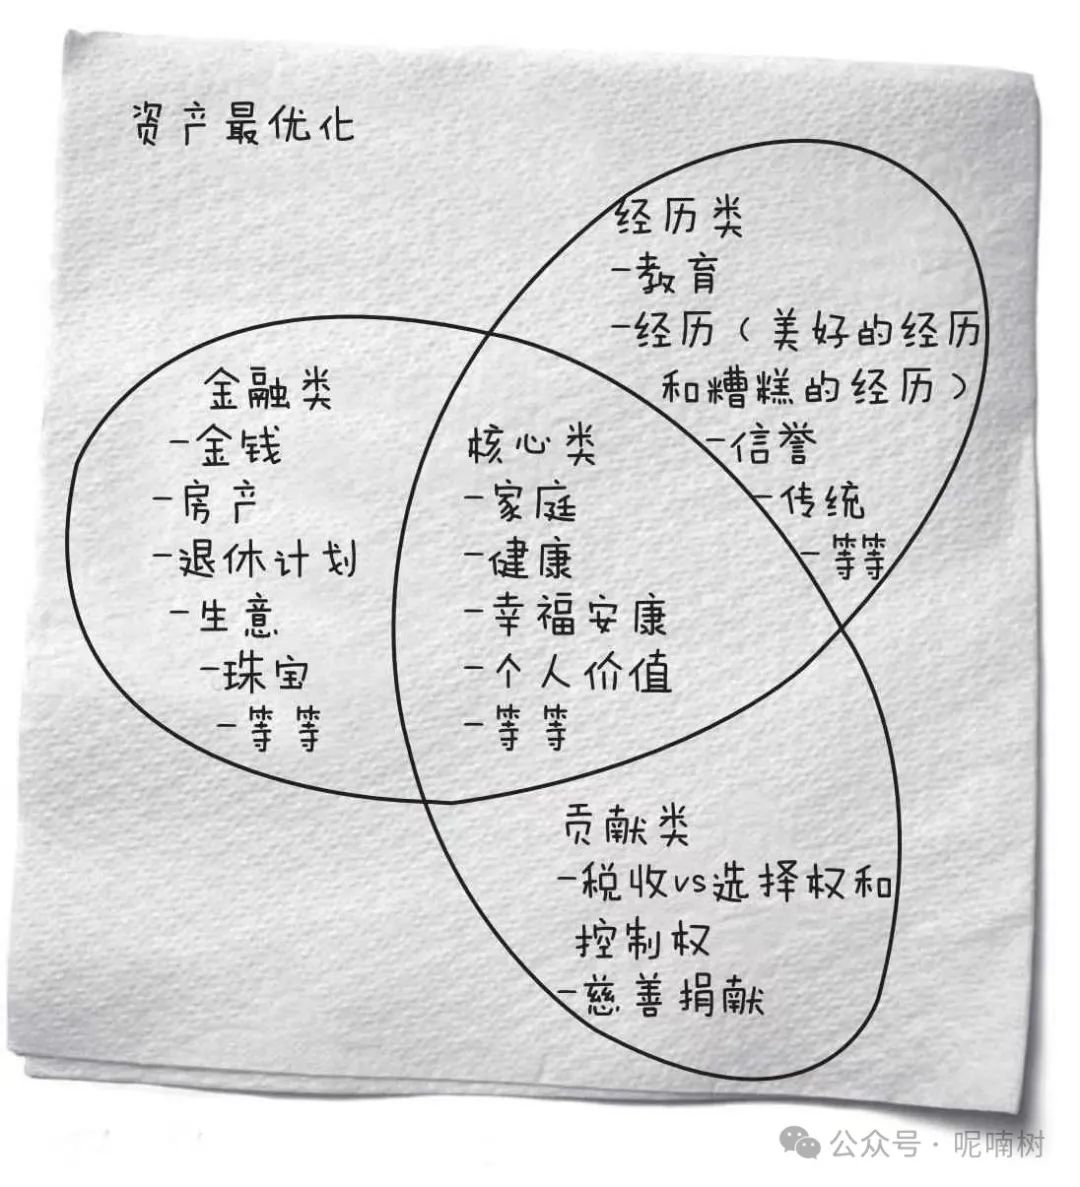 资产最优化
经历类
-教育
-经历（美好的经历
和糟糕的经历）
-信誉
-传统
-等等
金融类
-金钱
-房产
-退休计划
-生意
-珠宝
-等等
核心类
-家庭
-健康
-幸福安康
-个人价值
-等等
贡献类
-税收vs选择权和
控制权
-慈善捐献
公众号·呢喃树